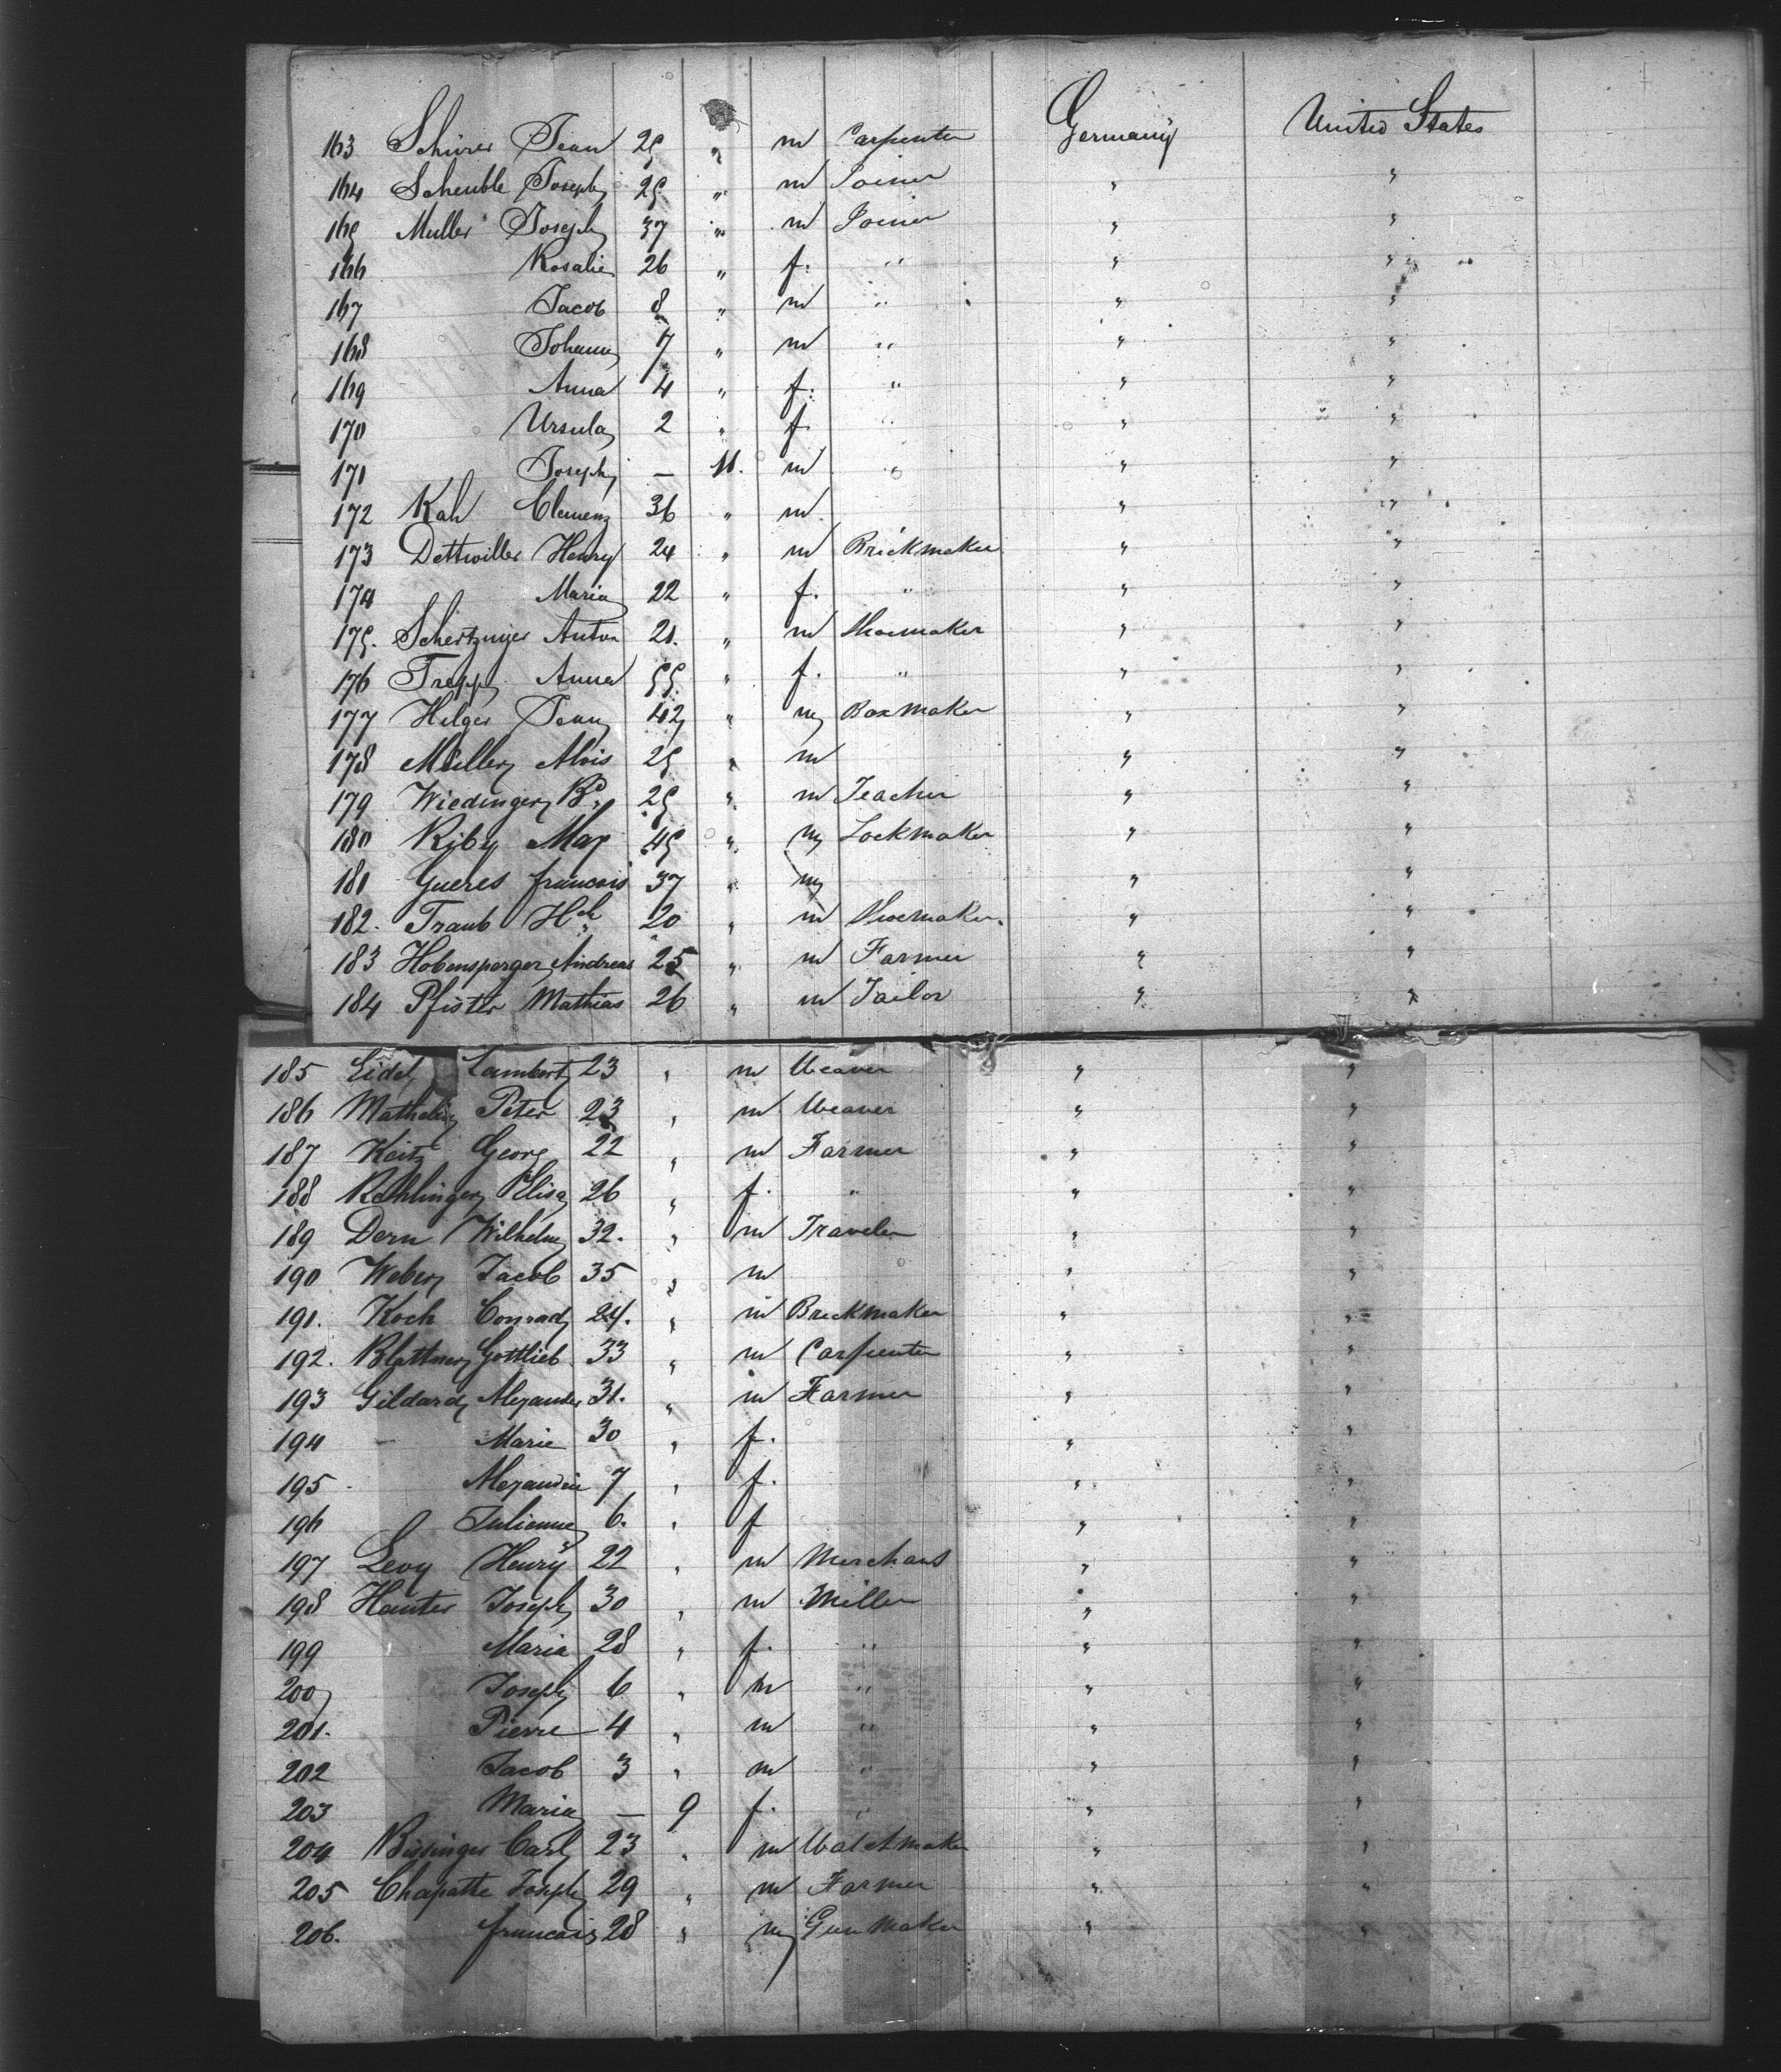 163 Schirer Jean 25 " m Carpenter Germany United States
164 Scheuble Joseph 25. " m Joiner " "
165 Muller Joseph 37 " m Joiner " "
166 Rosalie 26 " f. " " "
167 Jacob 8 " m " " "
168 Johann 7 " m " " "
169 Anna 4 " f. " " "
170 Ursula 2 " f. " " "
171 Joseph — 11. m " " "
172 Kah Clemenz 36 " m " "
173 Dettwiller Henry 24 " m Brickmaker " "
174 Maria 22 " f. " " "
175. Schertzinger Anton 21. " m Shoemaker " "
176 Trepp Anna 55. " f. " " "
177 Hilger Jean 42 " m Boxmaker " "
178 Müller Alois 25 " m " "
179 Wiedinger Bd 25 " m Teacher " "
180 Riby Max 45 " m Lockmaker " "
181 Gueres francois 37 " m " "
182. Traub Hch 20 " m Shoemaker. " "
183 Hobensperger Andreas 25 " m Farmer " "
184 Pfister Mathias 26 " m Tailor " "
185 Eidel Lambert 23 " m Weaver " "
186 Peter 23 " m Weaver " "
187 Keitz Georg 22 " m Farmer " "
188 Kohlinger Elisa 26 " f. " " "
189 Dern Wilhelm 32. " m Traveler " "
190 Weber Jacob 35 " m " "
191. Koch Conrad 24. " m Brickmaker " "
192. Blattner Gottlieb 33 " m Carpenter " "
193 Gildard Alexander 31. " m Farmer " "
194 Marie 30 " f. " "
195 Alexandrie 7 " f. " "
196 Julienne 6. " f " "
197 Levy Henry 22 " m Merchant " "
198 Hauter Joseph 30 " m Miller " "
199 Maria 28 " f. " " "
200 Joseph 6 " m " " "
201. Pierre 4 " m " " "
202 Jacob 3 " m " " "
203 Maria — 9 f. " " "
204 Bissinger Carl 23 " m Watchmaker " "
205 Chapatte Joseph 29 " m Farmer " "
206. francois 28 " m Gun Maker " "